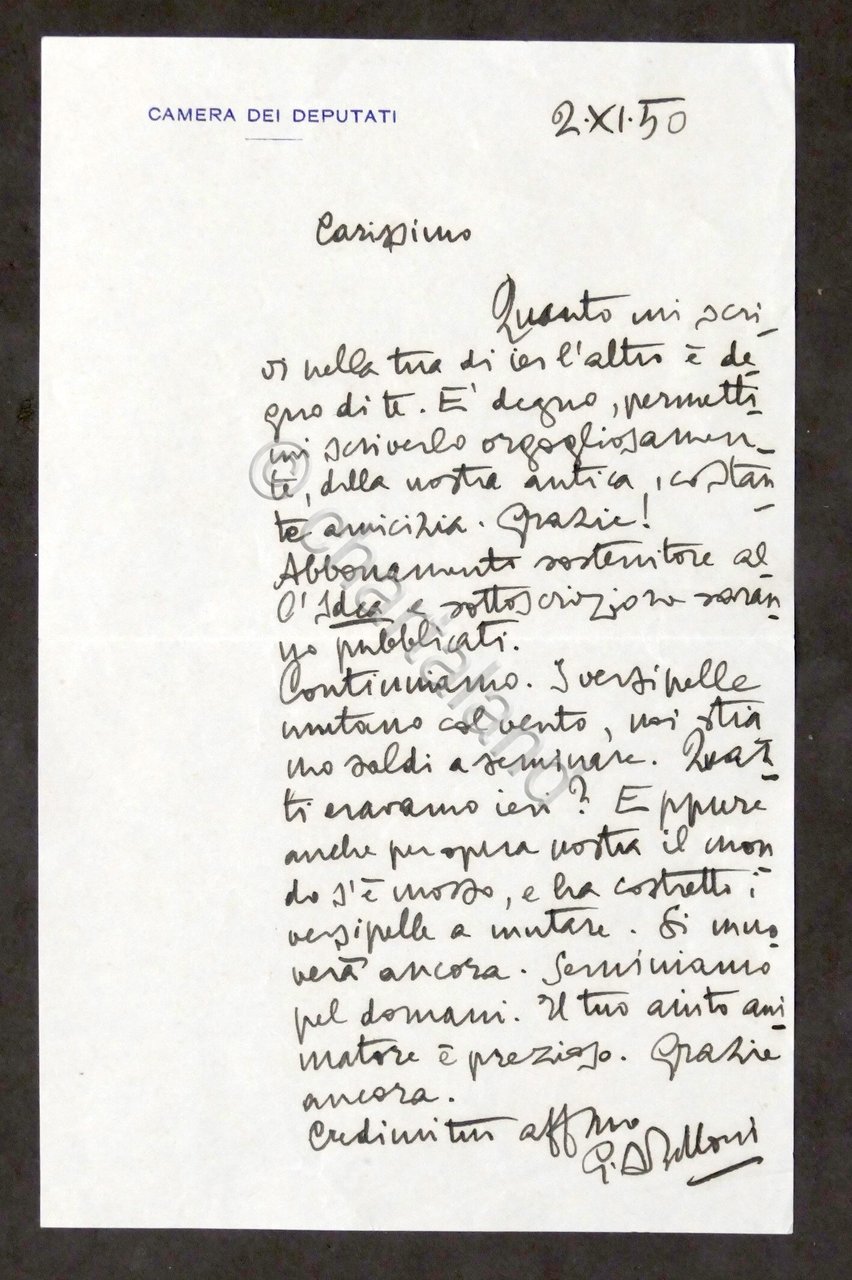 CAMERA DEI DEPUTATI
2.XI.50
Carissimo
Quanto mi scri-
vi nella tua di ier l'altro è de-
gno di te. E' degno, permetti-
mi scriverlo orgogliosamen-
te, della nostra antica, costan-
te amicizia. Grazie!
Abbonamento sostenitore al-
l'Idea e sottoscrizione saran-
no pubblicati.
Continuiamo. I versipelle
mutano col vento, noi stia
mo saldi a seminare. Quan-
ti eravamo ieri? Eppure
anche per opera nostra il mon
do s'è mosso, e ha costretto i
versipelle a mutare. Si muo-
verà ancora. Seminiamo
pel domani. Il tuo aiuto ani-
matore è prezioso. Grazie
ancora.
Credimi tuo aff/mo
G. A Belloni
© chartaland